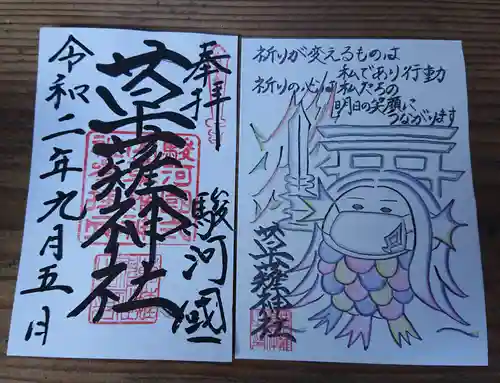 奉拝
駿河國
草薙神社
令和二年九月五日
祈りが変えるものは
私であり行動
祈りの心は私たちの
明日の笑顔に
つながります
草薙神社